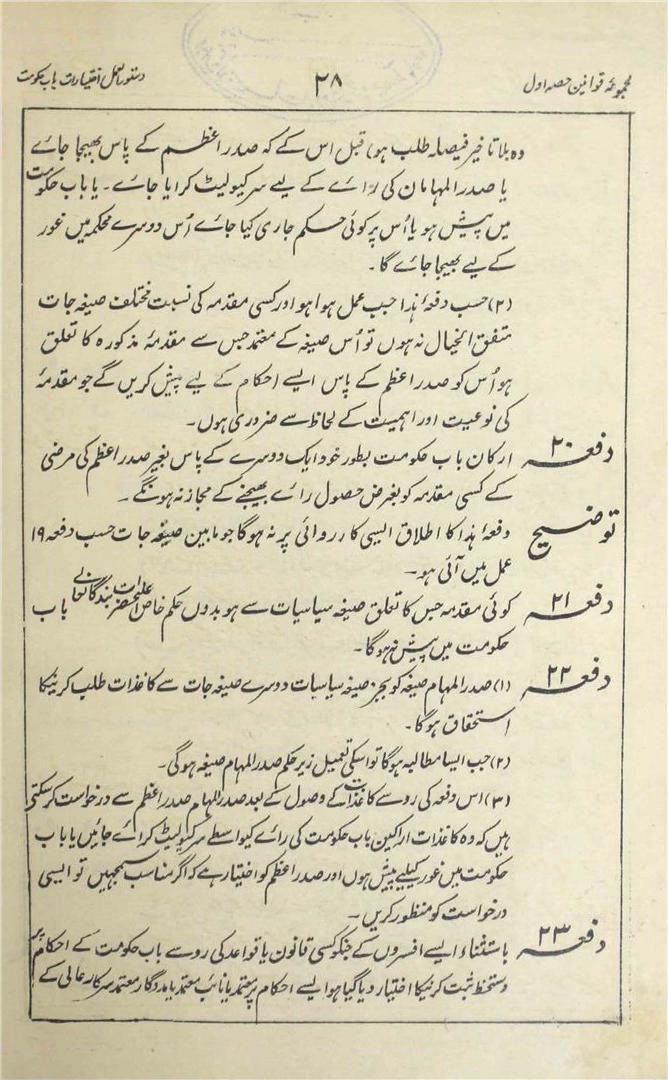 مجموعۂ قوانین حصہ اول
۲۸
دستور العمل اختیارات باب حکومت
وہ بلا تاخیر فیصلہ طلب ہو) قبل اس کے کہ صدر اعظم کے پاس بھیجا جائے
یا صدر المہامان کی رائے کے لیے سرکیولیٹ کرایا جائے۔ یا باب حکومت
میں پیش ہو یا اُس پر کوئی حکم جاری کیا جائے اُس دوسرے محکمہ میں غور
کے لیے بھیجا جائے گا۔
(۲) حسب دفعۂ ہذا جب عمل ہوا ہو اور کسی مقدمہ کی نسبت مختلف صیغہ جات
متفق الخیال نہ ہوں تو اُس صیغہ کے معتمد جس سے مقدمۂ مذکورہ کا تعلق
ہو اُس کو صدر اعظم کے پاس ایسے احکام کے لیے پیش کریں گے جو مقدمۂ
کی نوعیت اور اہمیت کے لحاظ سے ضروری ہوں۔
دفعہ ۲۰ ارکان باب حکومت بطور خود ایک دوسرے کے پاس بغیر صدر اعظم کی مرضی
کے کسی مقدمہ کو بغرض حصول رائے بھیجنے کے مجاز نہ ہونگے۔
توضیح دفعۂ ہذا کا اطلاق ایسی کارروائی پر نہ ہوگا جو مابین صیغہ جات حسب دفعہ ۱۹
عمل میں آئی ہو۔
دفعہ ۲۱ کوئی مقدمہ جس کا تعلق صیغہ سیاسیات سے ہو بدوں حکم خاص اعلیٰحضرت بندگانعالی باب
حکومت میں پیش نہ ہوگا۔
دفعہ ۲۲ (۱) صدر المہام صیغہ کو بجز صیغہ سیاسیات دوسرے صیغہ جات سے کاغذات طلب کرنیکا
استحقاق ہوگا۔
(۲) جب ایسا مطالبہ ہوگا تو اسکی تعمیل زیر حکم صدر المہام صیغہ ہوگی۔
(۳) اس دفعہ کی رو سے کاغذات کے وصول کے بعد صدر المہام صدر اعظم سے درخواست کر سکتے
ہیں کہ وہ کاغذات اراکین باب حکومت کی رائے کیواسطے سرکیولیٹ کرائے جائیں یا باب
حکومت میں غور کیلیے پیش ہوں اور صدر اعظم کو اختیار ہے کہ اگر مناسب سمجھیں تو ایسی
درخواست کو منظور کریں۔
دفعہ ۲۳ باستثناء ایسے افسروں کے جنکو کسی قانون یا قواعد کی رو سے باب حکومت کے احکام پر
دستخط ثبت کرنیکا اختیار دیا گیا ہو ایسے احکام پر معتمد یا نائب معتمد یا مددگار معتمد سرکار عالی کے